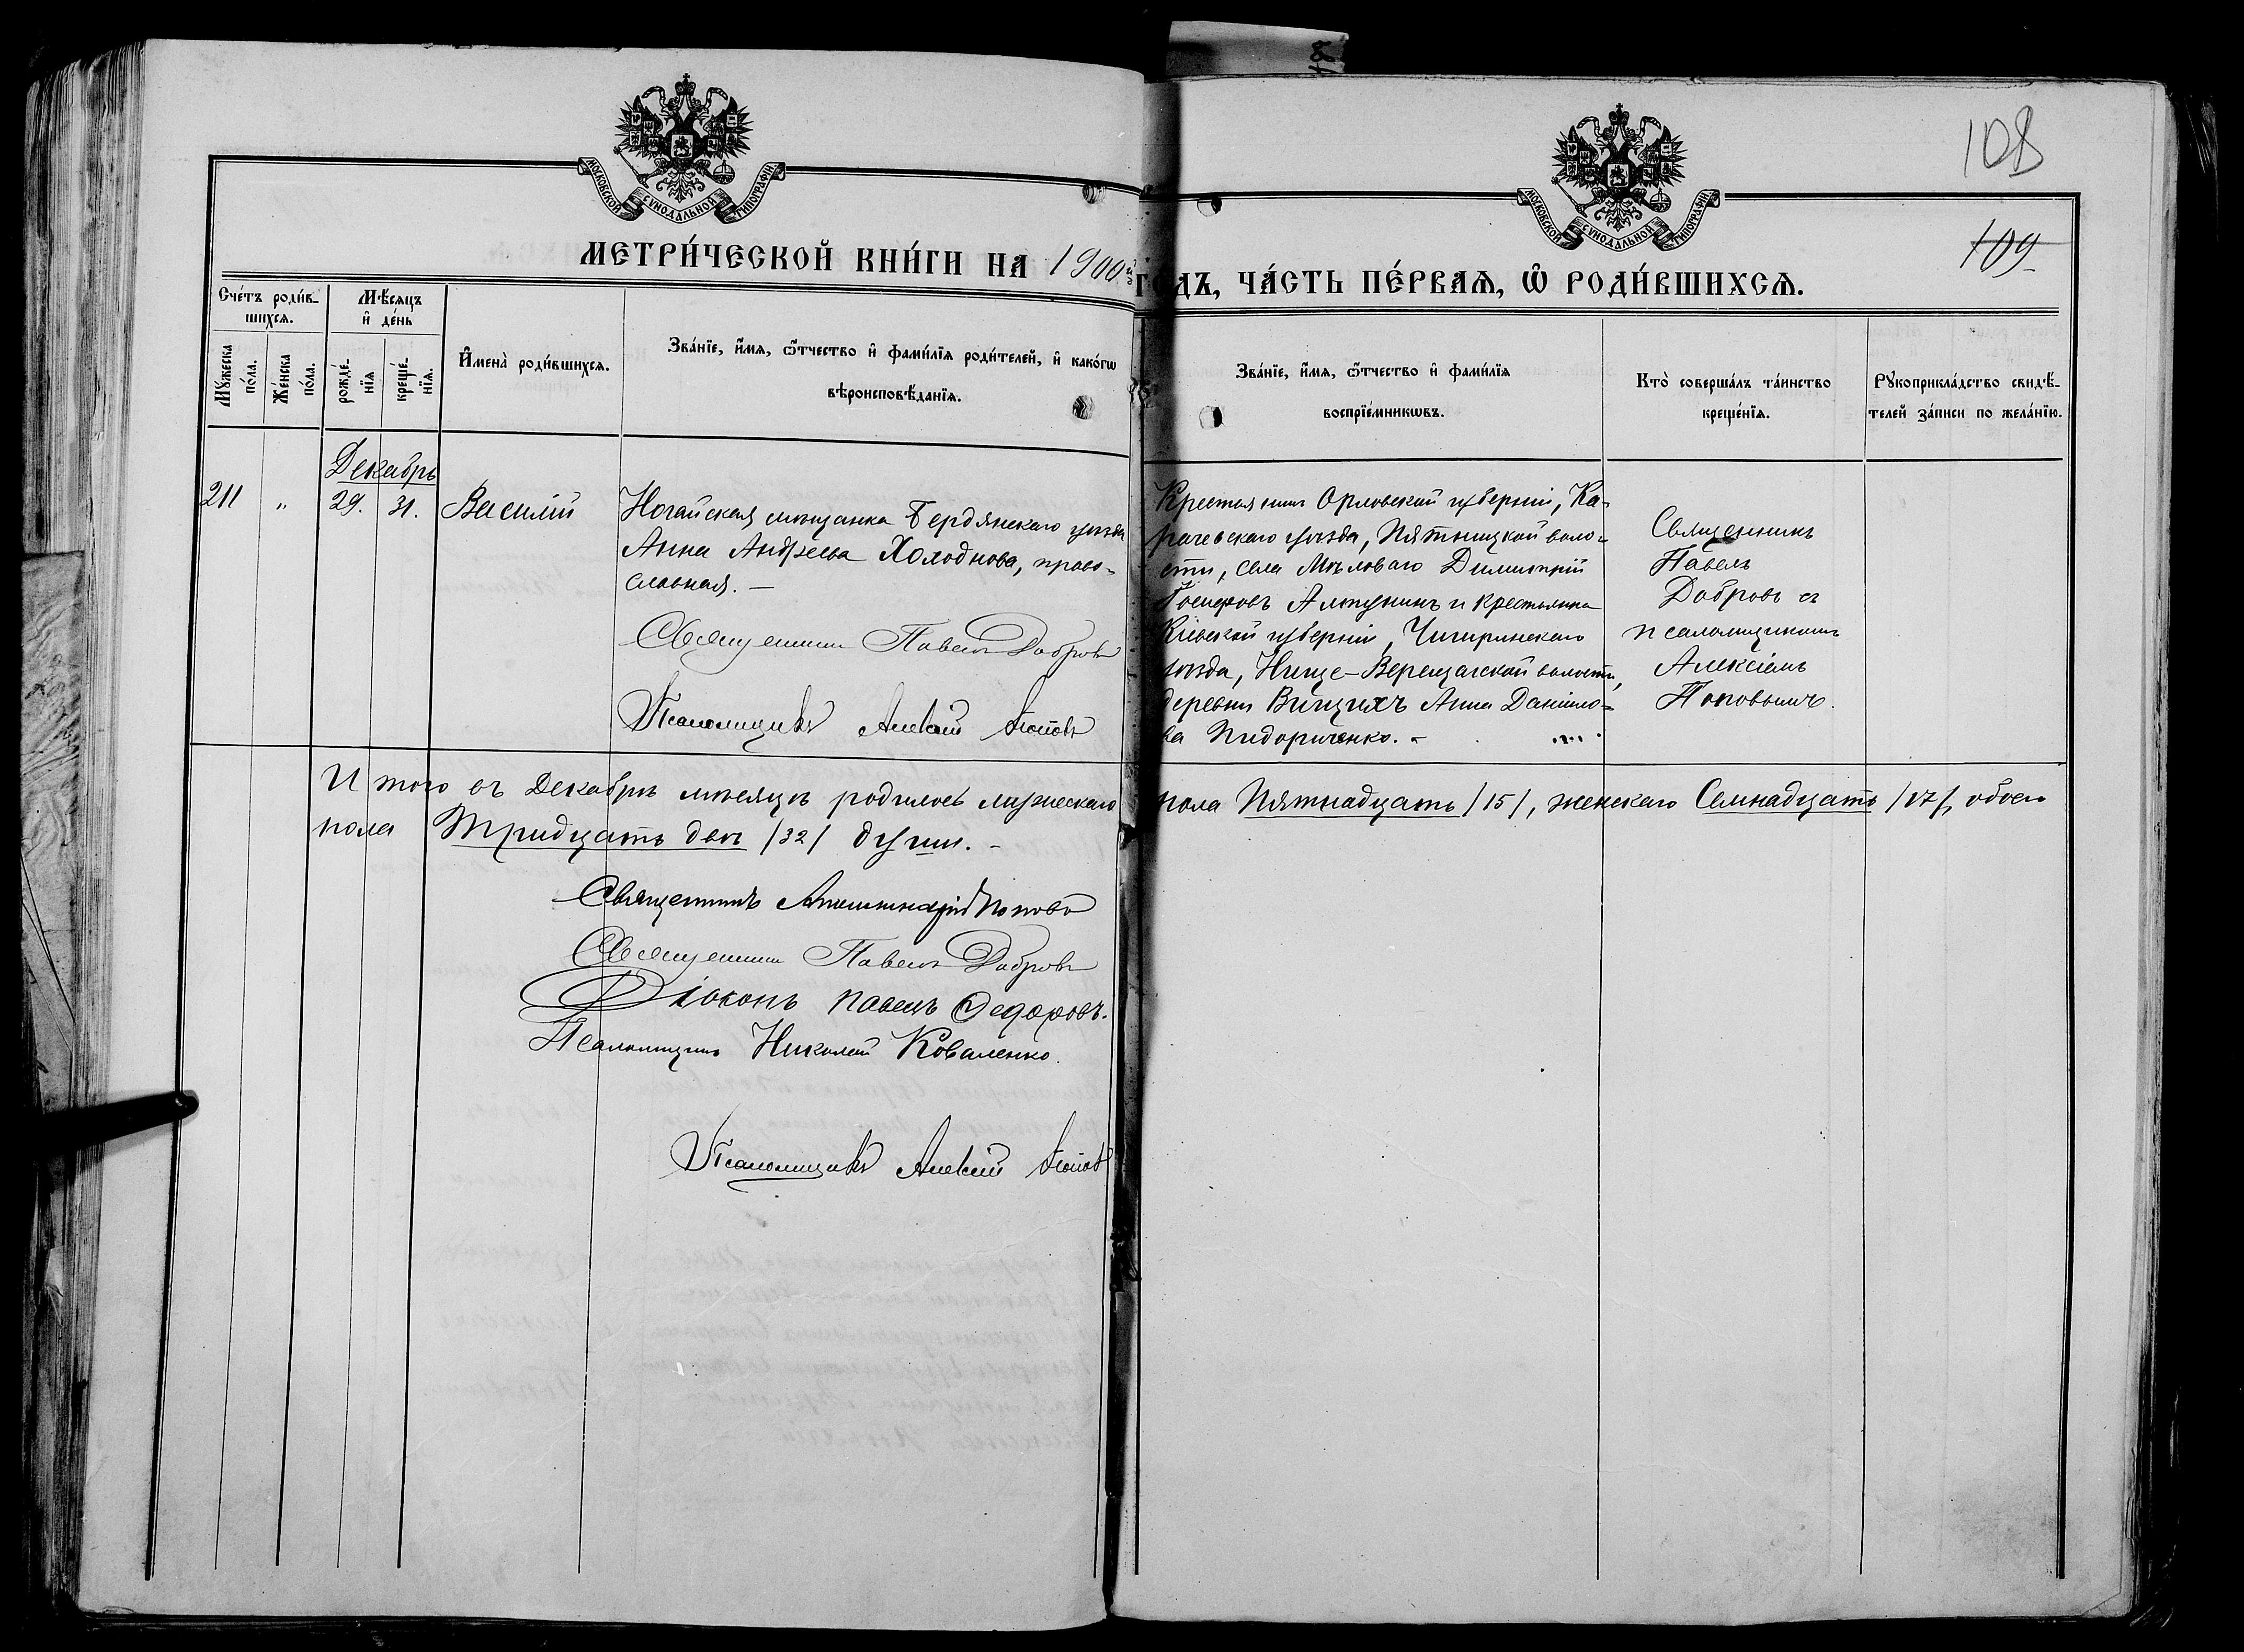 108
109
МОСКОВСКОЙ СѴНОДАЛЬНОЙ ТИПОГРАФІИ
МОСКОВСКОЙ СѴНОДАЛЬНОЙ ТИПОГРАФІИ
МЕТРИ́ЧЕСКОЙ КНИ́ГИ НА 1900й ГОДЪ, ЧА́СТЬ ПЕ́РВАЯ, Ѡ РОДИ́ВШИХСЯ.
Сче́тъ роди́в-
шихся.
Му́жеска по́ла.
Же́нска по́ла.
Мѣ́сяцъ
и҆ де́нь
рожде́-
нїя
креще́-
нїя.
И҆мена̀ роди́вшихся.
Зва́нїе, и҆́мя, ѻ҆́тчество и҆ фами́лїя роди́телей, и҆ како́гѡ
вѣроисповѣ́данїя.
Зва́нїе, и҆́мя, ѻ҆́тчество и҆ фами́лїя
воспрїе́мникѡвъ.
Кто̀ соверша́лъ та́инство
креще́нїя.
Рꙋкоприкла́дство свидѣ́-
телей за́писи по жела́нїю.
Декабрь
211 " 29. 31. Василій
Ногайская мѣщанка Бердянскаго уѣзда
Анна Андреева Холоднова, право-
славная. —
Священникъ Павелъ Добровъ
Псаломщикъ Алексій Поповъ
Крестьянинъ Орловской губерніи, Ка-
рачевскаго уѣзда, Пятницкой воло-
сти, села Мѣловаго Димитрій
Іосифовъ Алтунинъ и крестьянка
Кіевской губерніи, Чигиринскаго
уѣзда, Нище-Верещагской волости,
деревни Вищихъ Анна Даніило-
ва Пидориченко. -
Священникъ
Павелъ
Добровъ съ
псаломщикомъ
Алексіемъ
Поповымъ.
Итого въ Декабрѣ мѣсяцѣ родилось мужескаго пола Пятнадцать /15/, женскаго Семнадцать /17/, обоего
пола Тридцать двѣ /32/ души. -
Священникъ Апполинарій Поповъ
Священникъ Павелъ Добровъ
Діаконъ Павелъ Федоровъ.
Псаломщикъ Николай Коваленко.
Псаломщикъ Алексій Поповъ